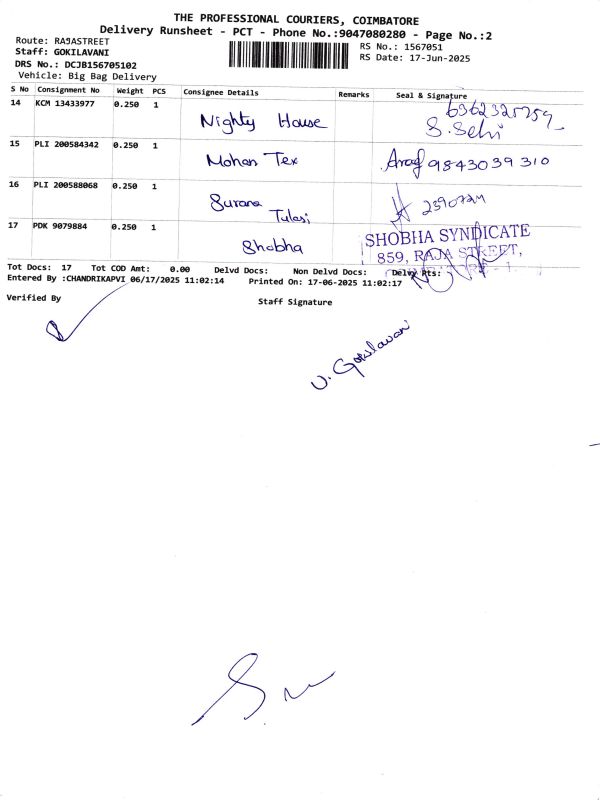 THE PROFESSIONAL COURIERS, COIMBATORE
Delivery Runsheet - PCT - Phone No.:9047080280 - Page No.:2
Route: RAJASTREET
RS No.: 1567051
Staff: GOKILAVANI
RS Date: 17-Jun-2025
DRS No.: DCJB156705102
Vehicle: Big Bag Delivery
S No Consignment No Weight PCS Consignee Details Remarks Seal & Signature
14 KCM 13433977 0.250 1 Nighty House 6362325759
S. Selvi
15 PLI 200584342 0.250 1 Mohan Tex 9843039310
16 PLI 200588068 0.250 1 Surana Tulasi 2390724
17 PDK 9079884 0.250 1 Shobha SHOBHA SYNDICATE
859, RAJA STREET,
Tot Docs: 17 Tot COD Amt: 0.00 Delvd Docs: Non Delvd Docs: Delvy Rts:
Entered By :CHANDRIKAPVI 06/17/2025 11:02:14 Printed On: 17-06-2025 11:02:17
Verified By Staff Signature
V. Gokilavani